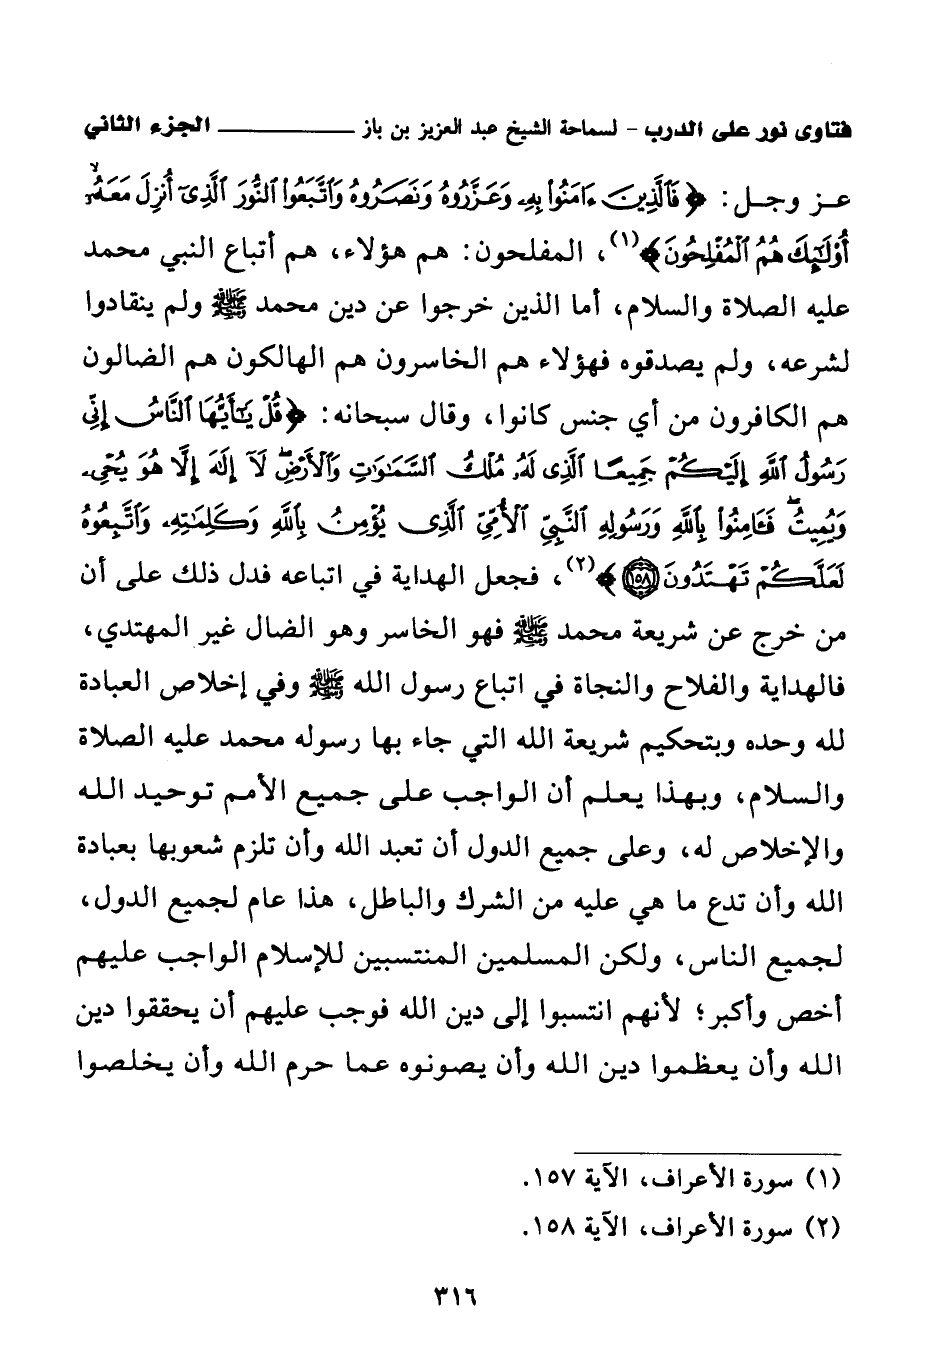 فتاوى نور على الدرب - لسماحة الشيخ عبد العزيز بن باز ــــــــــــ الجزء الثاني
عز وجل: ﴿فَٱلَّذِينَ ءَامَنُوا۟ بِهِۦ وَعَزَّرُوهُ وَنَصَرُوهُ وَٱتَّبَعُوا۟ ٱلنُّورَ ٱلَّذِىٓ أُنزِلَ مَعَهُۥٓۙ
أُو۟لَٰٓئِكَ هُمُ ٱلْمُفْلِحُونَ﴾(١)، المفلحون: هم هؤلاء، هم أتباع النبي محمد
عليه الصلاة والسلام، أما الذين خرجوا عن دين محمد ﷺ ولم ينقادوا
لشرعه، ولم يصدقوه فهؤلاء هم الخاسرون هم الهالكون هم الضالون
هم الكافرون من أي جنس كانوا، وقال سبحانه: ﴿قُلْ يَٰٓأَيُّهَا ٱلنَّاسُ إِنِّى
رَسُولُ ٱللَّهِ إِلَيْكُمْ جَمِيعًا ٱلَّذِى لَهُۥ مُلْكُ ٱلسَّمَٰوَٰتِ وَٱلْأَرْضِۖ لَآ إِلَٰهَ إِلَّا هُوَ يُحْىِۦ
وَيُمِيتُۖ فَـَٔامِنُوا۟ بِٱللَّهِ وَرَسُولِهِ ٱلنَّبِىِّ ٱلْأُمِّىِّ ٱلَّذِى يُؤْمِنُ بِٱللَّهِ وَكَلِمَٰتِهِۦ وَٱتَّبِعُوهُ
لَعَلَّكُمْ تَهْتَدُونَ ١٥٨﴾(٢)، فجعل الهداية في اتباعه فدل ذلك على أن
من خرج عن شريعة محمد ﷺ فهو الخاسر وهو الضال غير المهتدي،
فالهداية والفلاح والنجاة في اتباع رسول الله ﷺ وفي إخلاص العبادة
لله وحده وبتحكيم شريعة الله التي جاء بها رسوله محمد عليه الصلاة
والسلام، وبهذا يعلم أن الواجب على جميع الأمم توحيد الله
والإخلاص له، وعلى جميع الدول أن تعبد الله وأن تلزم شعوبها بعبادة
الله وأن تدع ما هي عليه من الشرك والباطل، هذا عام لجميع الدول،
لجميع الناس، ولكن المسلمين المنتسبين للإسلام الواجب عليهم
أخص وأكبر؛ لأنهم انتسبوا إلى دين الله فوجب عليهم أن يحققوا دين
الله وأن يعظموا دين الله وأن يصونوه عما حرم الله وأن يخلصوا
(١) سورة الأعراف، الآية ١٥٧.
(٢) سورة الأعراف، الآية ١٥٨.
٣١٦